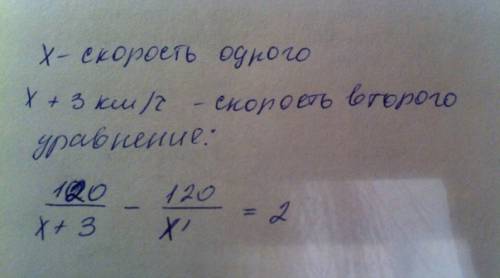 x - скорость одного
x + 3 км/ч - скорость второго
уравнение:
120/x+3 - 120/x = 2